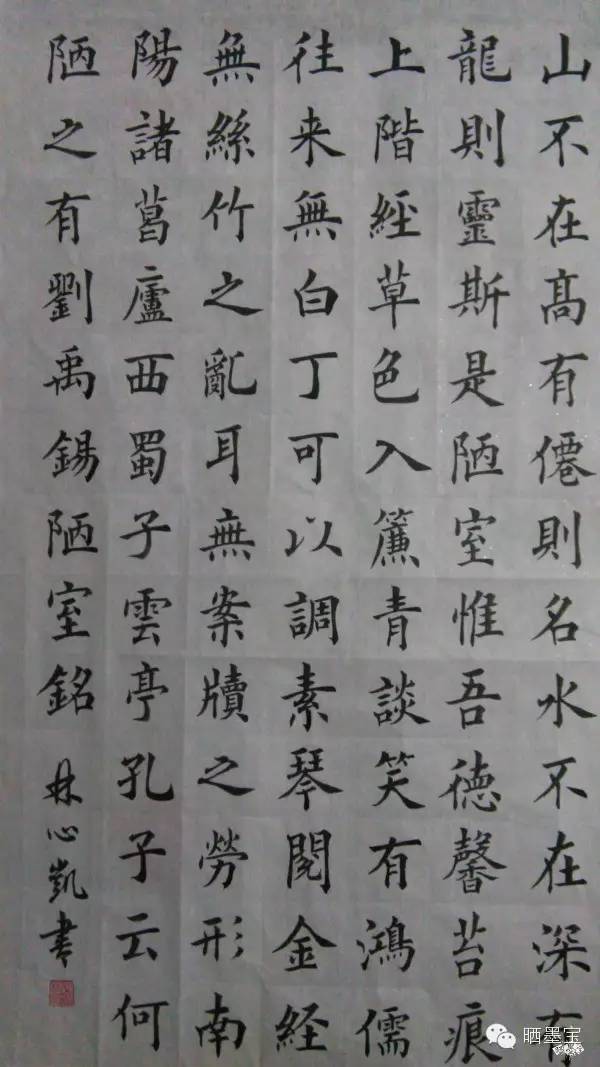 山不在高有僊則名水不在深有
龍則靈斯是陋室惟吾德馨苔痕
上階經草色入簾青談笑有鴻儒
往来無白丁可以調素琴閱金経
無絲竹之亂耳無案牘之勞形南
陽諸葛廬西蜀子雲亭孔子云何
陋之有劉禹錫陋室銘
林心凱書
晒墨宝